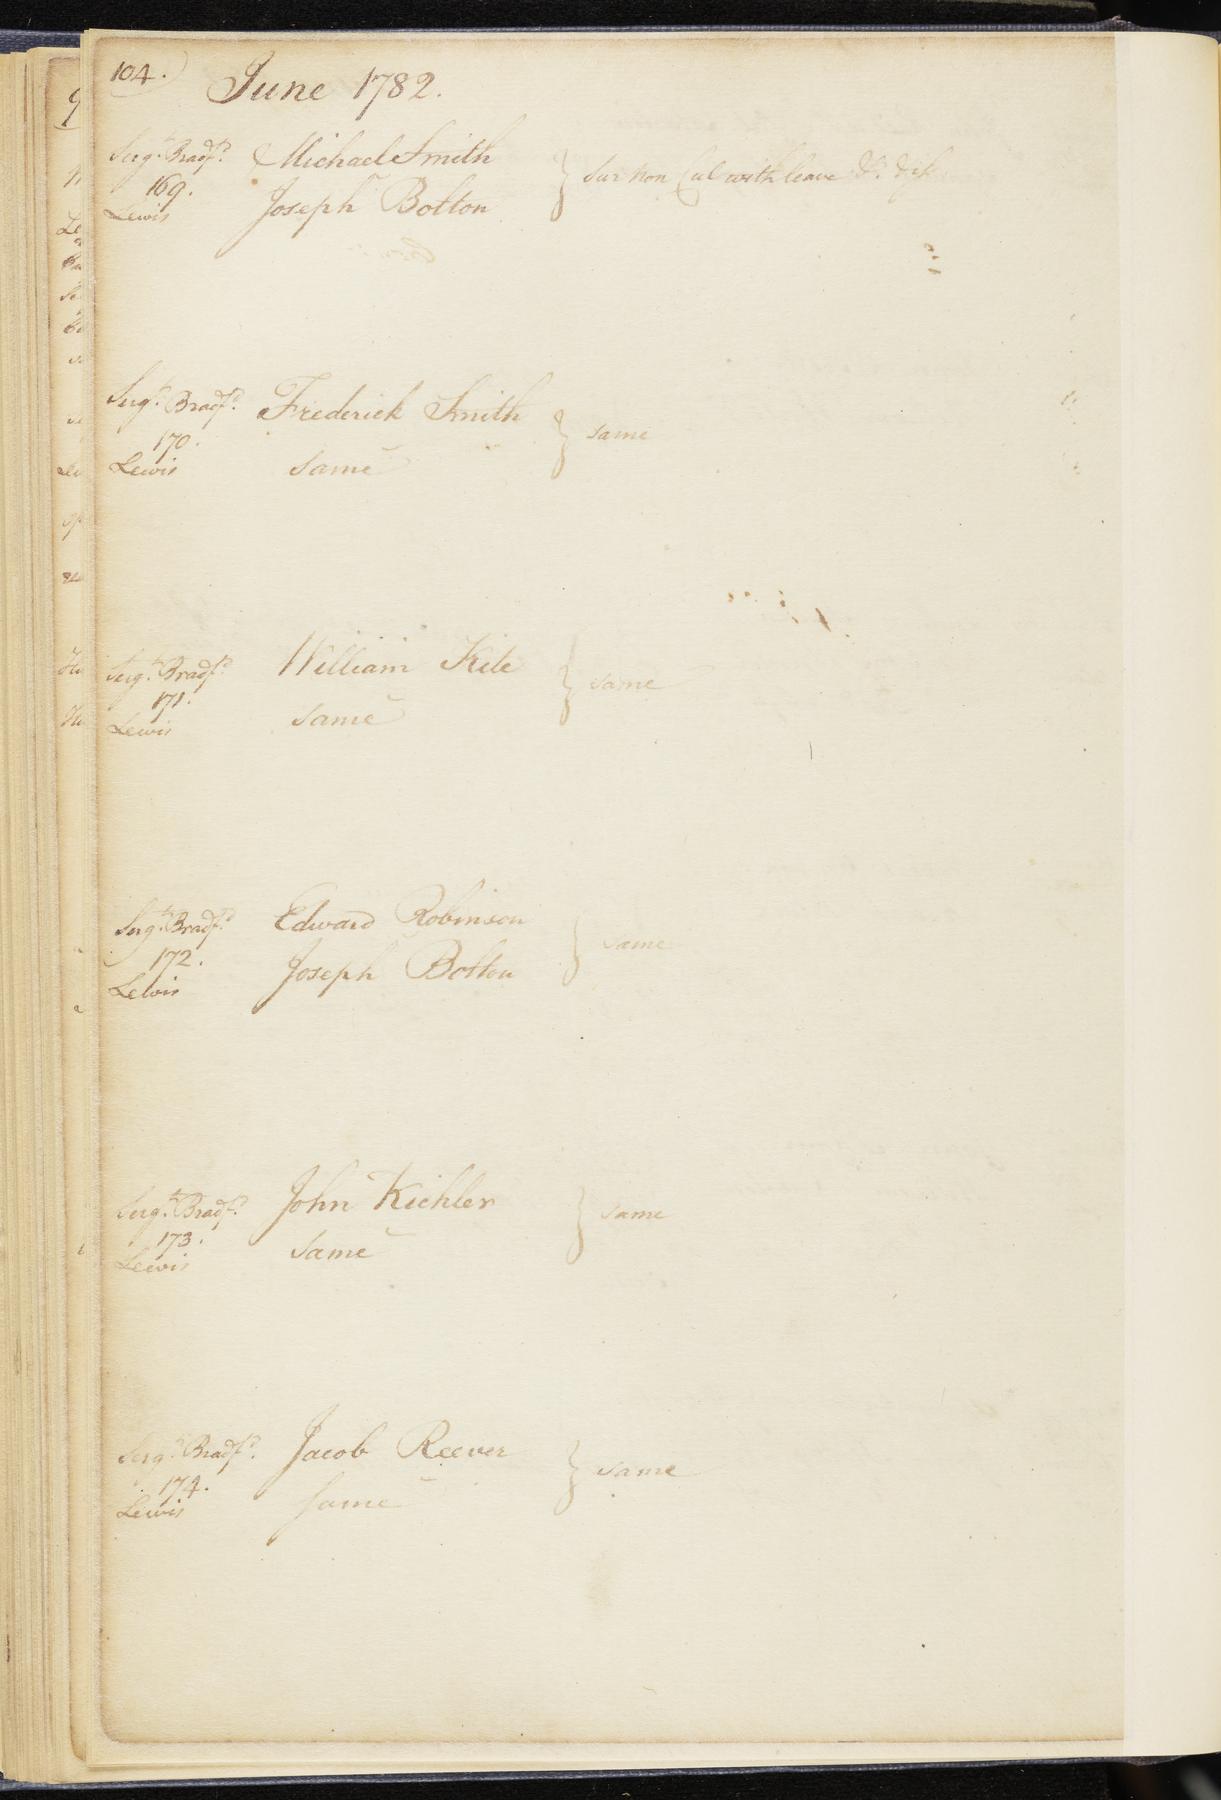 104.
June 1782.
Serg.t Bradf.d Michael Smith
169. } Sur non Cul with leave &c.
Lewis Joseph Bolton
Serg.t Bradf.d Frederick Smith
170. } same
Lewis same
Serg.t Bradf.d William Kite
171. } same
Lewis same
Serg.t Bradf.d Edward Robinson
172. } same
Lewis Joseph Bolton
Serg.t Bradf.d John Kichler
173. } same
Lewis same
Serg.t Bradf.d Jacob Reever
174. } same
Lewis same